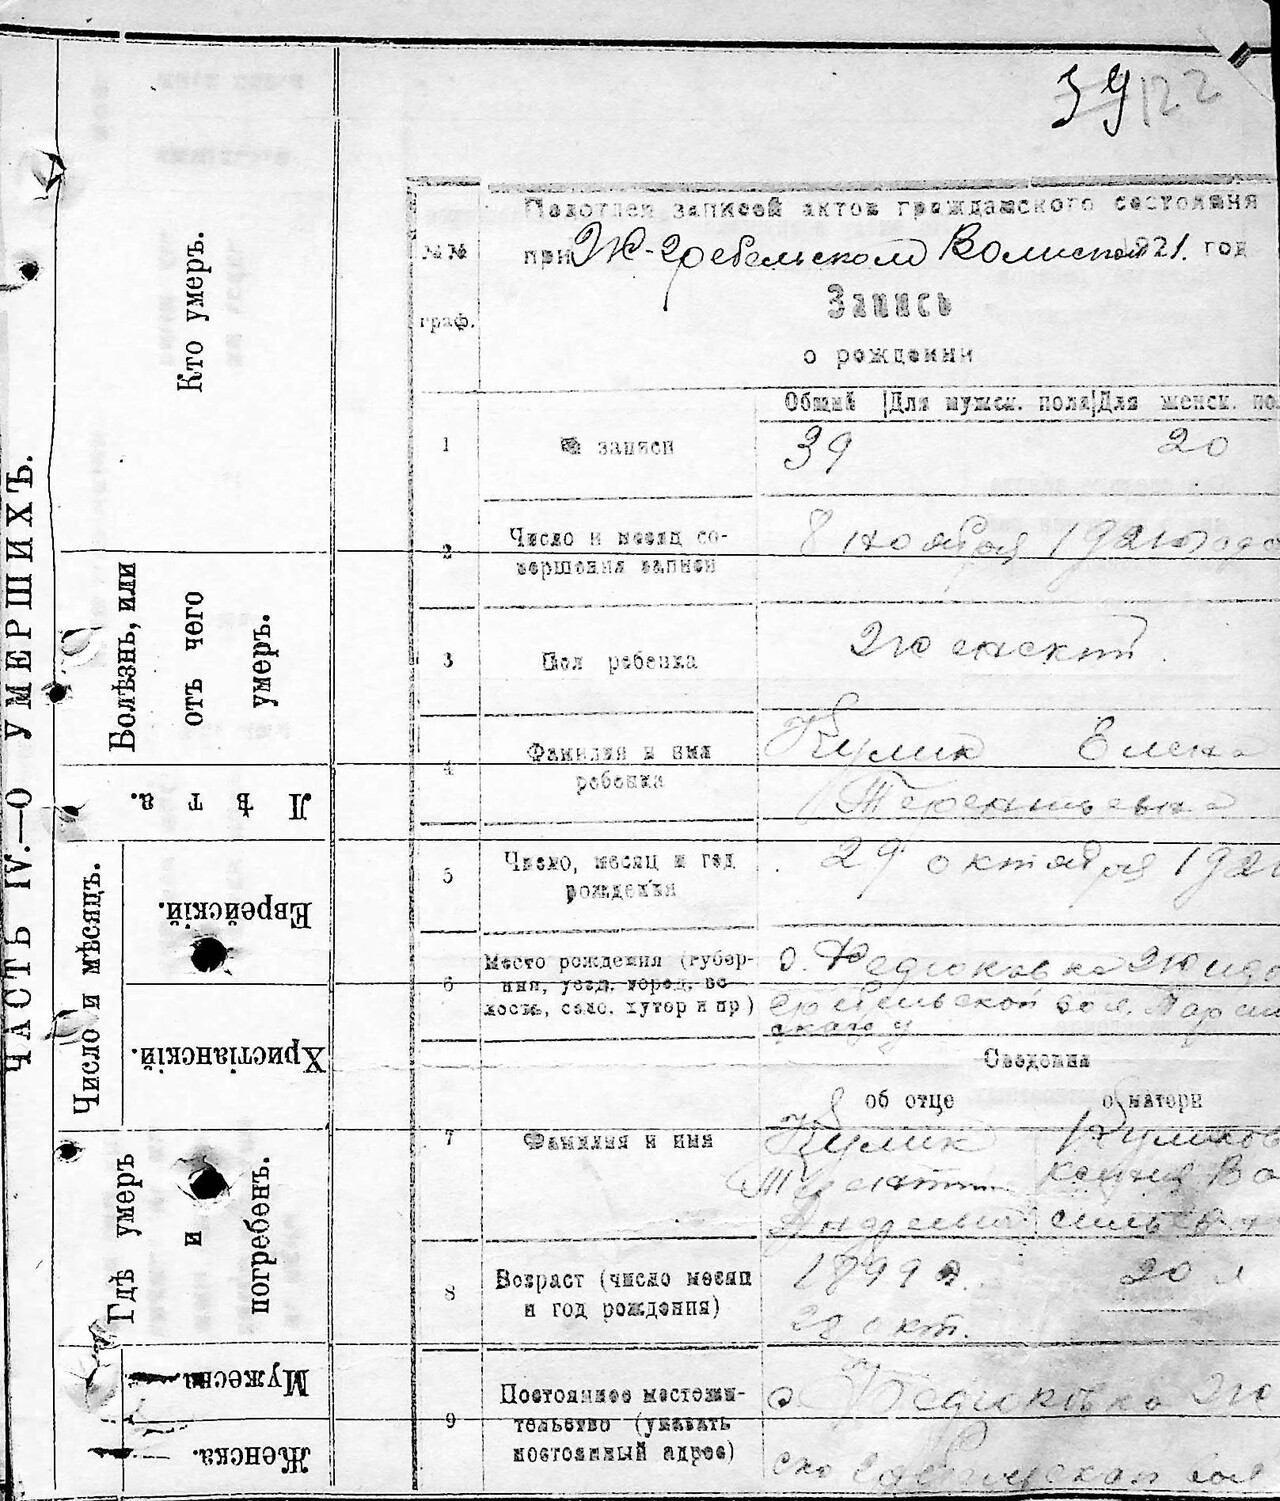 39 122
ЧАСТЬ IV.—О УМЕРШИХЪ.
Кто умеръ.
Болѣзнь, или
отъ чего
умеръ.
Лѣта.
Число и мѣсяцъ.
Еврейскій.
Христіанскій.
Гдѣ умеръ
и
погребенъ.
Мужеска.
Женска.
№№
граф.
Подотдел записей актов гражданского состояния
при Ж-Гребельском Волисп 1921. год
Запись
о рождении
Общий Для мужск. пола Для женск. по
1 № записи 39 20
2 Число и месяц со-
вершения записи
8 ноября 1921 года
3 Пол ребенка женский
4 Фамилия и имя
ребенка
Кулик Елена
Терентьевна
5 Число, месяц и год
рождения
29 октября 192
6 Место рождения (губер-
ния, уезд, город, во
лость, село, хутор и пр)
с. Федюковка Жидо
Гребельской вол. Таращ
Сведения
об отце о матери
7 Фамилия и имя
Кулик Куликов
Терентий Ксения Ва
Андреевич сильевн
8 Возраст (число месяц
и год рождения)
1899 20 л
28 окт.
9 Постоянное местожи-
тельство (указать
постоянный адрес)
с Федюковка Жи
вол